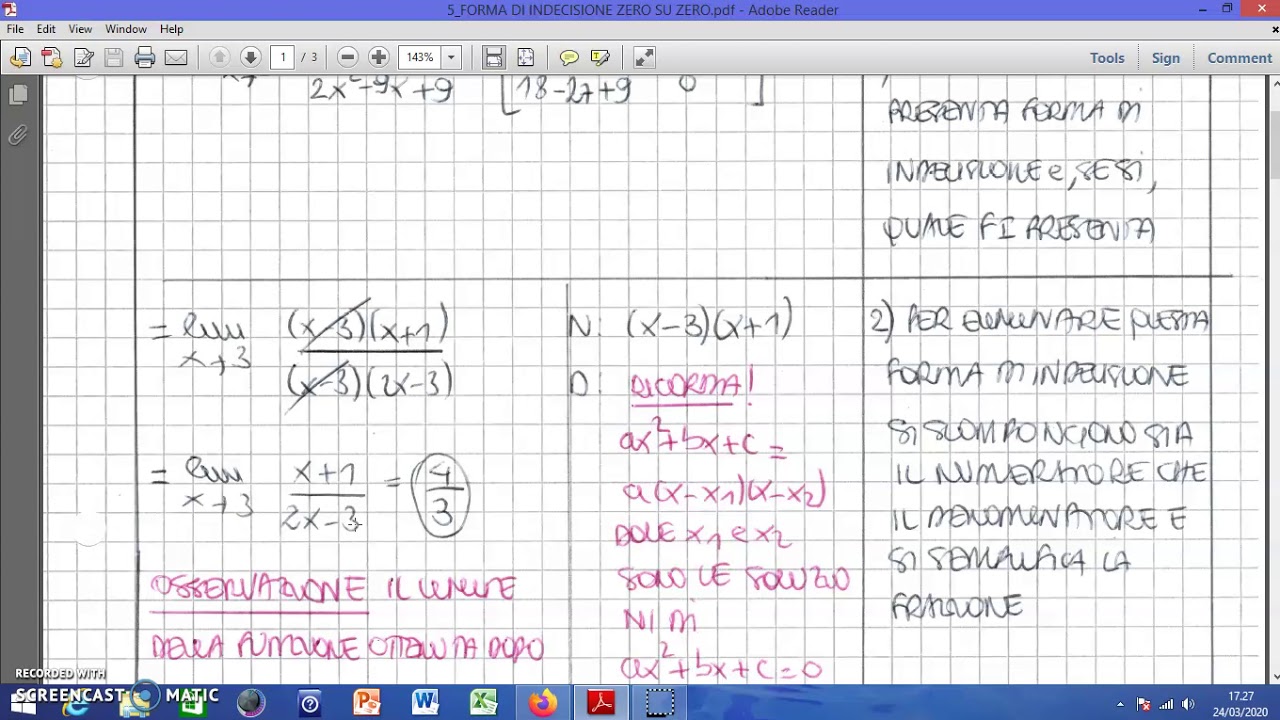 5_FORMA DI INDECISIONE ZERO SU ZERO.pdf - Adobe Reader
File Edit View Window Help
1 / 3 143% Tools Sign Comment
2x²-9x+9 [18-27+9 0 ]
PRESENTA FORMA DI
INDECISIONE e, SE SI,
QUALE SI PRESENTA
= lim x→3 (x-3)(x+1) / (x-3)(2x-3)
= lim x→3 x+1 / 2x-3 = 4/3
OSSERVAZIONE IL LIMITE
DELLA FUNZIONE OTTENUTA DOPO
N: (x-3)(x+1)
D: RICORDA!
ax²+bx+c =
a(x-x₁)(x-x₂)
DOVE x₁ e x₂
SONO LE SOLUZIO
NI DI
ax²+bx+c=0
2) PER ELIMINARE QUESTA
FORMA DI INDECISIONE
SI SCOMPONGONO SIA
IL NUMERATORE CHE
IL DENOMINATORE E
SI SEMPLIFICA LA
FRAZIONE
RECORDED WITH
SCREENCAST MATIC
17.27
24/03/2020